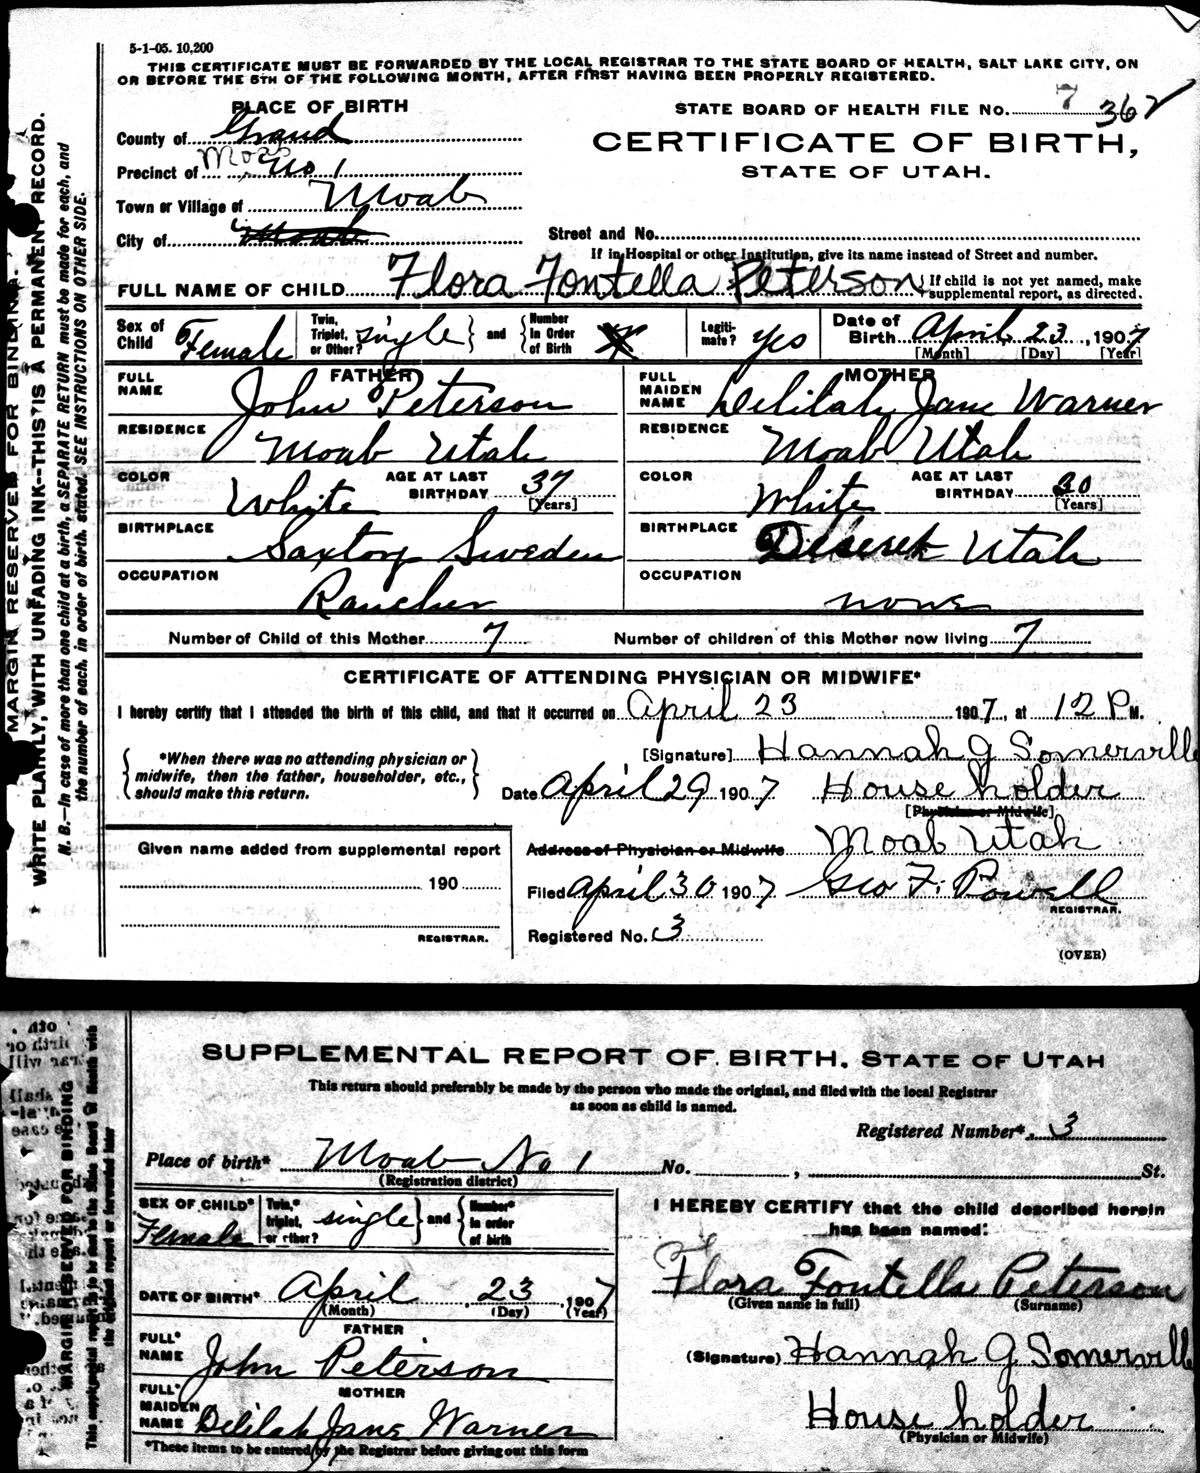 5-1-05. 10,200
THIS CERTIFICATE MUST BE FORWARDED BY THE LOCAL REGISTRAR TO THE STATE BOARD OF HEALTH, SALT LAKE CITY, ON
OR BEFORE THE 5TH OF THE FOLLOWING MONTH, AFTER FIRST HAVING BEEN PROPERLY REGISTERED.
PLACE OF BIRTH
County of Grand
Precinct of Moab No 1
Town or Village of Moab
City of Moab
STATE BOARD OF HEALTH FILE No. 7 362
CERTIFICATE OF BIRTH,
STATE OF UTAH.
Street and No.
If in Hospital or other Institution, give its name instead of Street and number.
FULL NAME OF CHILD Flora Fontella Peterson
If child is not yet named, make
supplemental report, as directed.
Sex of Child Female
Twin, Triplet, or Other? single and Number In Order of Birth
Legiti-mate? yes
Date of Birth April 23, 1907
[Month] [Day] [Year]
FATHER
FULL NAME John Peterson
RESIDENCE Moab Utah
COLOR White AGE AT LAST BIRTHDAY 37 [Years]
BIRTHPLACE Saxtory Sweden
OCCUPATION Rancher
MOTHER
FULL MAIDEN NAME Delilah Jane Warner
RESIDENCE Moab Utah
COLOR White AGE AT LAST BIRTHDAY 30 [Years]
BIRTHPLACE Deseret Utah
OCCUPATION none
Number of Child of this Mother 7 Number of children of this Mother now living 7
CERTIFICATE OF ATTENDING PHYSICIAN OR MIDWIFE*
I hereby certify that I attended the birth of this child, and that it occurred on April 23 1907, at 12 P M.
*When there was no attending physician or
midwife, then the father, householder, etc.,
should make this return.
[Signature] Hannah G Somerville
Date April 29 1907 House holder
[Physician or Midwife]
Address of Physician or Midwife Moab Utah
Filed April 30 1907 Geo F. Powell
REGISTRAR.
Registered No. 3
(OVER)
Given name added from supplemental report
190
REGISTRAR.
MARGIN RESERVED FOR BINDING.
WRITE PLAINLY, WITH UNFADING INK--THIS IS A PERMANENT RECORD.
N. B.—In case of more than one child at a birth, a SEPARATE RETURN must be made for each, and
the number of each, in order of birth, stated. SEE INSTRUCTIONS ON OTHER SIDE.
SUPPLEMENTAL REPORT OF BIRTH, STATE OF UTAH
This return should preferably be made by the person who made the original, and filed with the local Registrar
as soon as child is named.
Registered Number* 3
Place of birth* Moab No 1 No. , St.
(Registration district)
SEX OF CHILD* Female
Twin,* triplet, or other? single and Number* in order of birth
DATE OF BIRTH* April 23, 1907
(Month) (Day) (Year)
FATHER
FULL* NAME John Peterson
MOTHER
FULL* MAIDEN NAME Delilah Jane Warner
*These items to be entered by the Registrar before giving out this form
I HEREBY CERTIFY that the child described herein
has been named:
Flora Fontella Peterson
(Given name in full) (Surname)
(Signature) Hannah G Somerville
House holder
(Physician or Midwife)
MARGIN RESERVED FOR BINDING
This supplemental report to be sent to the State Board of Health with
the original report or forwarded later